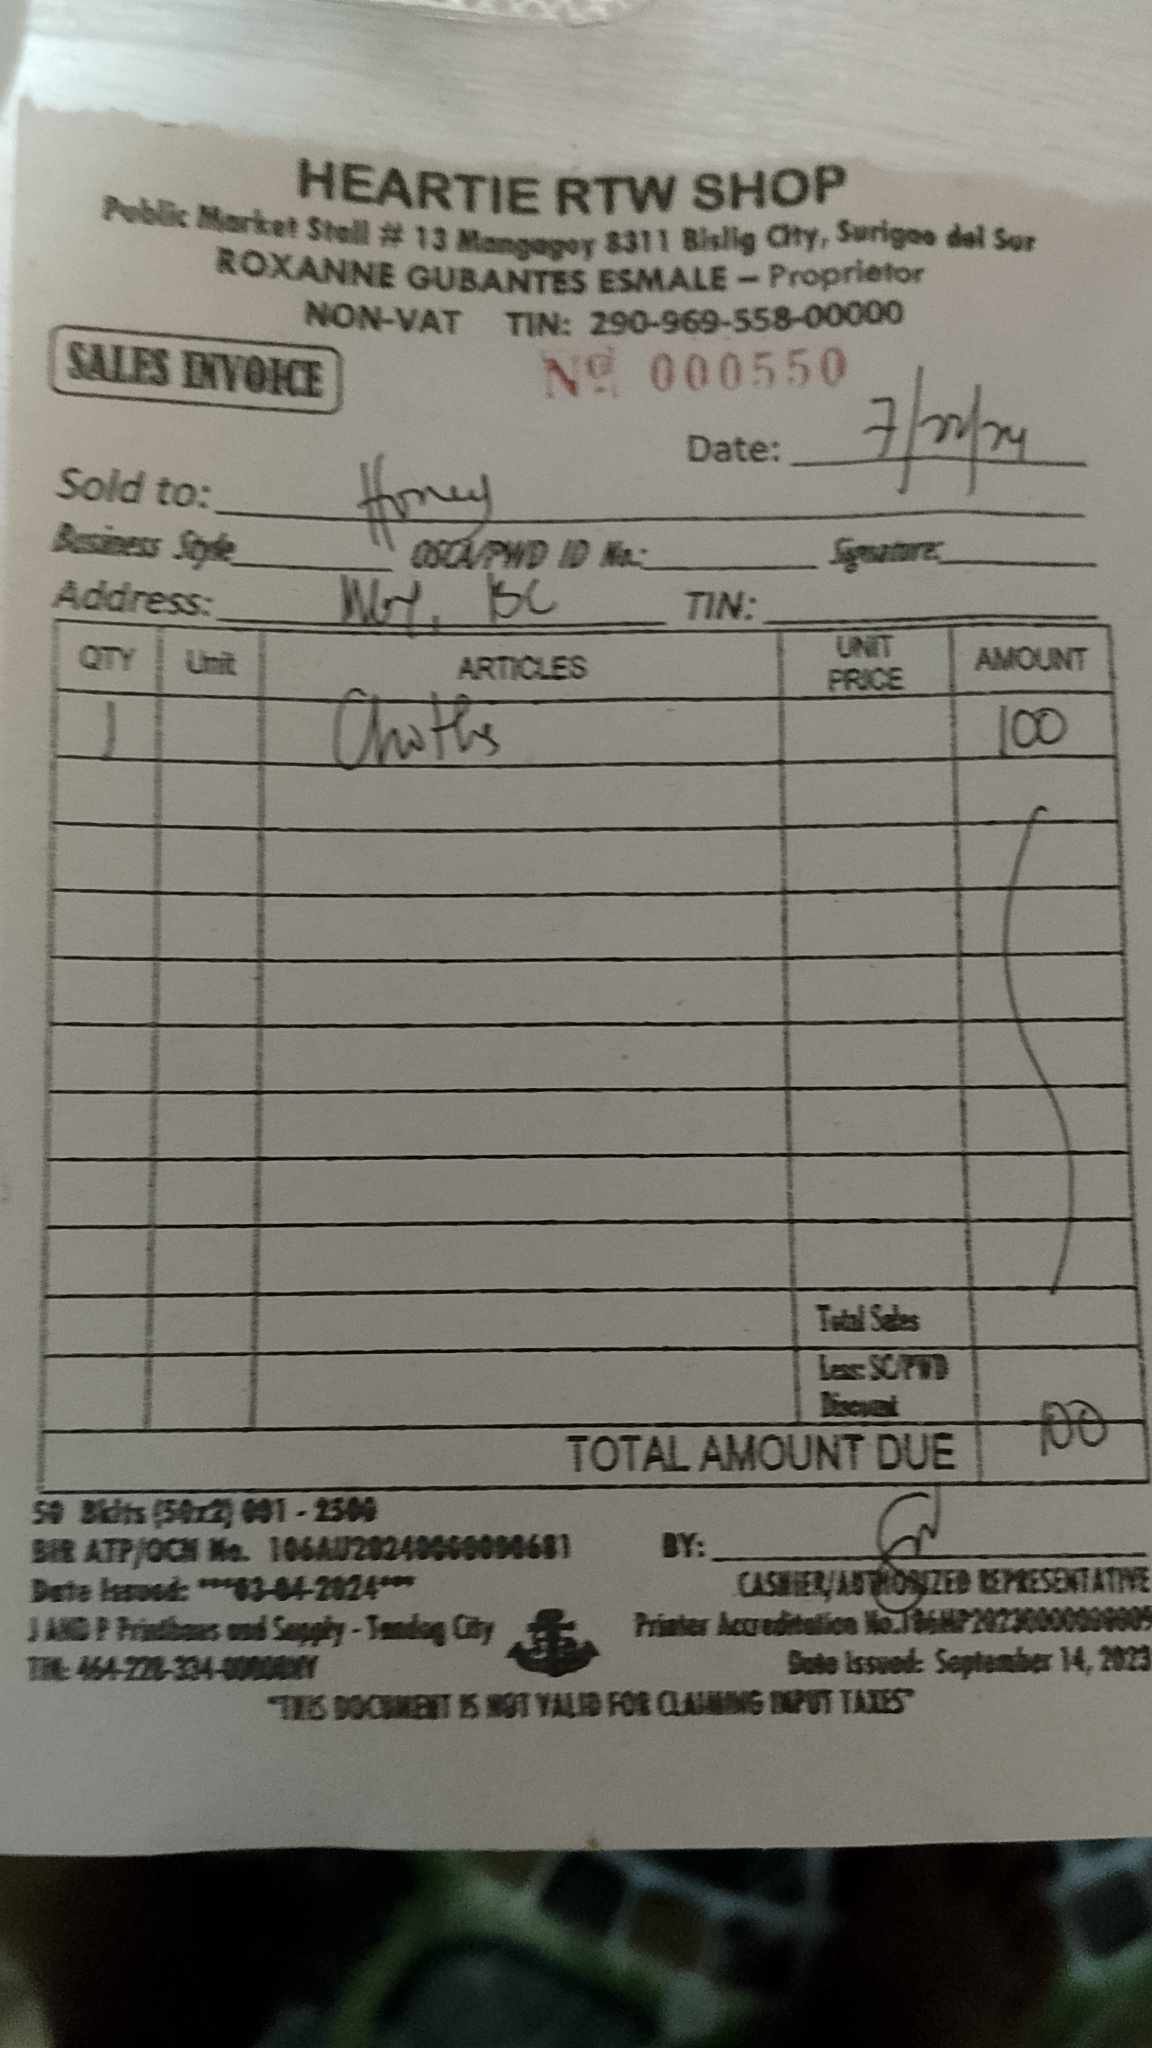 HEARTIE RTW SHOP
Public Market Stall # 13 Mangagoy 8311 Bislig City, Surigao del Sur
ROXANNE GUBANTES ESMALE – Proprietor
NON-VAT TIN: 290-969-558-00000
SALES INVOICE
Nº 000550
Date: 7/22/24
Sold to: Honey
Business Style OSCA/PWD ID No.: Signature:
Address: Mgy, BC TIN:
QTY Unit ARTICLES UNIT PRICE AMOUNT
1 Cloths 100
Total Sales
Less: SC/PWD
Discount
TOTAL AMOUNT DUE 100
50 Bklts (50x2) 001 - 2500
BIR ATP/OCN No. 106AU20240000000681
BY:
Date Issued: ***03-04-2024***
CASHIER/AUTHORIZED REPRESENTATIVE
J AND P Printhaus and Supply - Tandag City
Printer Accreditation No.106MP20230000000009
TIN: 464-228-334-00000NV
Date Issued: September 14, 2023
"THIS DOCUMENT IS NOT VALID FOR CLAIMING INPUT TAXES"